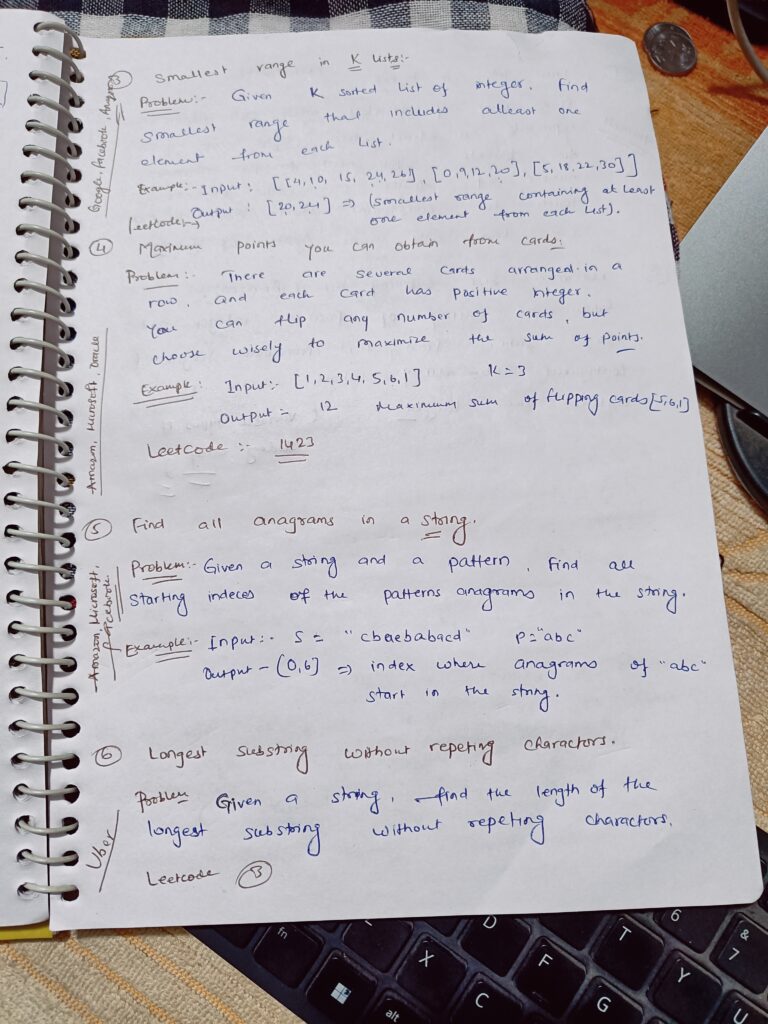 ③ Smallest range in K Lists:-
Google, facebook,
Problem:- Given K sorted List of integer. Find
smallest range that includes atleast one
element from each List.
Example:- Input: [[4,10, 15, 24,26], [0,9,12,20], [5,18,22,30]]
Output: [20,24] => (smallest range containing at least
one element from each List).
④ Maximum points you can obtain from cards:
Amazon, Microsoft, Oracle
Problem:- There are several cards arranged in a
row, and each card has positive integer.
You can flip any number of cards, but
choose wisely to maximize the sum of points.
Example: Input:- [1,2,3,4,5,6,1] K=3
Output - 12 Maximum sum of flipping cards [5,6,1]
LeetCode :- 1423
⑤ Find all anagrams in a string.
Amazon, Microsoft,
facebook
Problem:- Given a string and a pattern, find all
starting indeces of the patterns anagrams in the string.
Example:- Input:- S = "cbaebabacd" P="abc"
Output - (0,6] => index where anagrams of "abc"
start in the string.
⑥ Longest substring without repeting charactors.
Uber
Problem Given a string, find the length of the
longest substring without repeting charactors.
Leetcode ③
fn
alt
X
C
D
F
G
T
Y
U
6
&
7